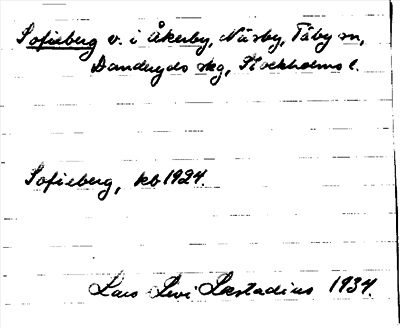 Sofieberg v. i Åkerby, Näsby, Täby sn,
Danderyds skg, Stockholms l.
Sofieberg, kb 1924.
Lars Levi Læstadius 1934.